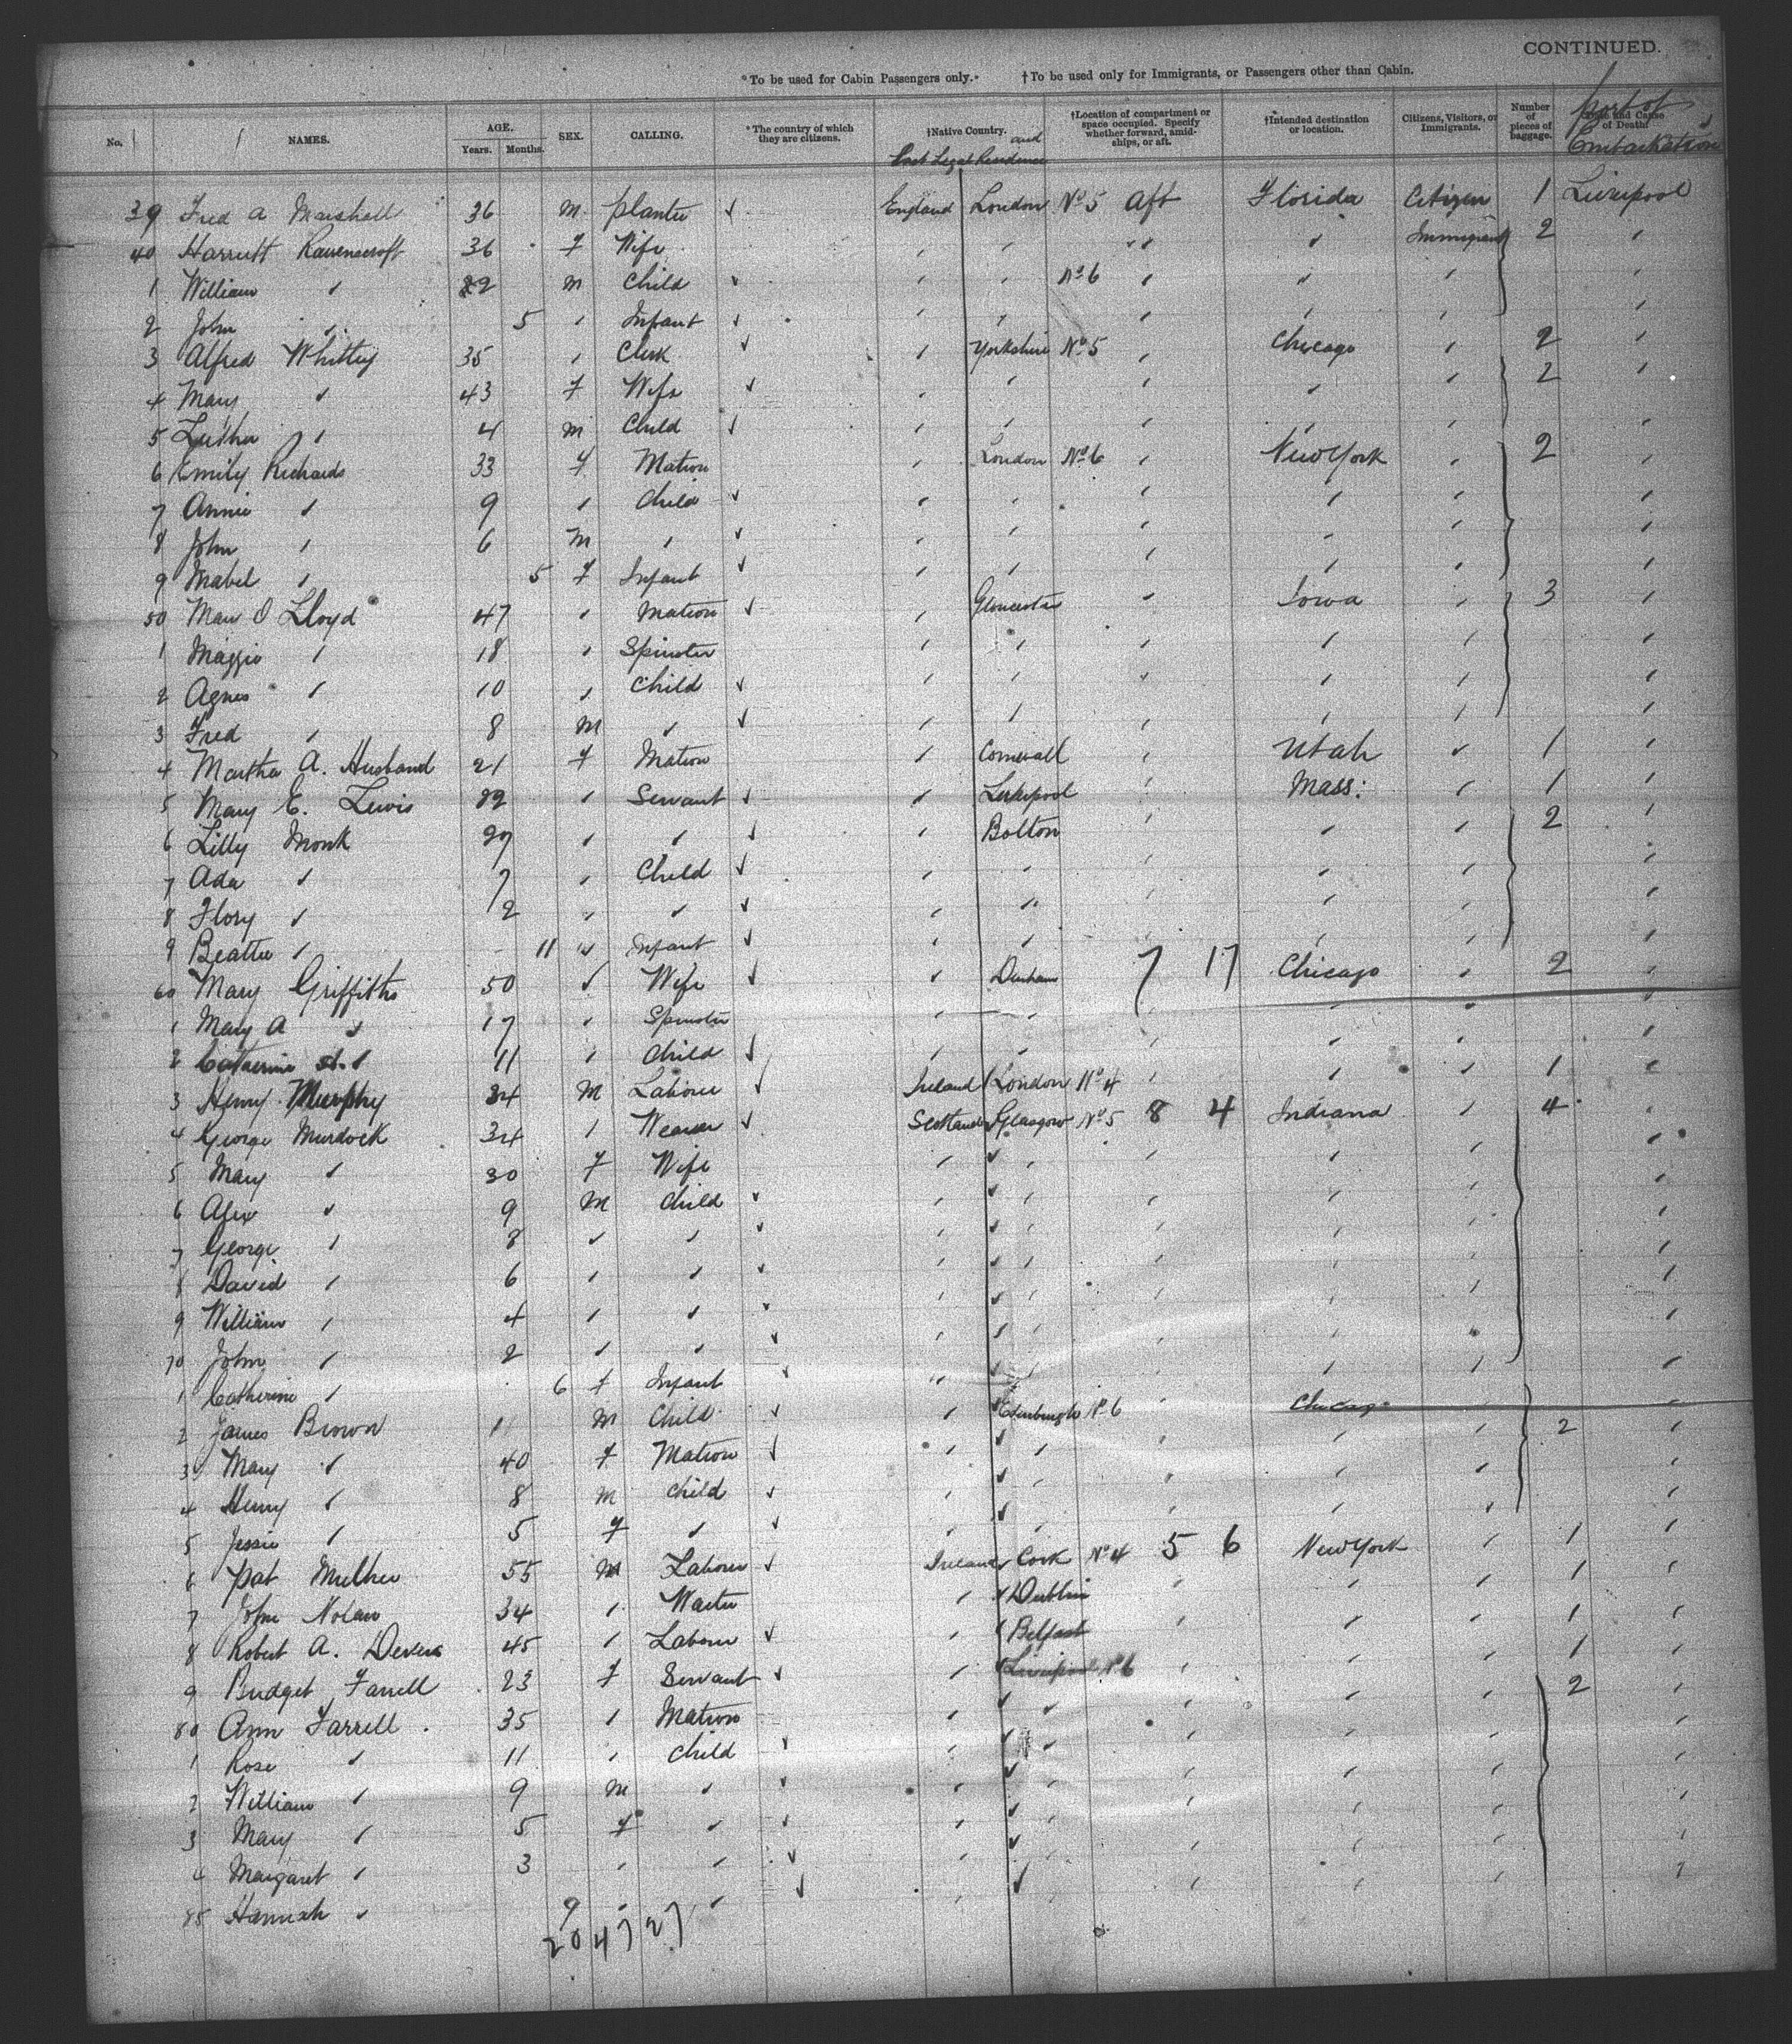 CONTINUED.
*To be used for Cabin Passengers only.* †To be used only for Immigrants, or Passengers other than Cabin.
No. NAMES. AGE. Years. Months. SEX. CALLING. *The country of which they are citizens. †Native Country. and Last Legal Residence †Location of compartment or space occupied. Specify whether forward, amidships, or aft. †Intended destination or location. Citizens, Visitors, or Immigrants. Number of pieces of baggage. Date and Cause of Death port of Embarkation
39 Fred A Marshall 36 M planter ✓ England London No 5 Aft Florida Citizen 1 Liverpool
40 Harriett Ravenscroft 36 f Wife " " " " " Immigrant 2 "
1 William " m Child ✓ " " No 6 " " " "
2 John " 5 " Infant ✓ " " " " " "
3 Alfred Whitley 35 " Clerk ✓ " Yorkshire No 5 " Chicago " 2 "
4 Mary " 43 f Wife ✓ " " " " " 2 "
5 Luther " 4 m Child ✓ " " " " " "
6 Emily Richards 33 f Matron " London No 6 " New York " 2 "
7 Annie " 9 " Child ✓ " " " " " "
8 John " 6 m " ✓ " " " " " "
9 Mabel " 5 f Infant ✓ " " " " " "
50 Mary J Lloyd 47 " Matron ✓ " Gloucester " Iowa " 3 "
1 Maggie " 18 " Spinster " " " " " "
2 Agnes " 10 " Child ✓ " " " " " "
3 Fred " 8 m " ✓ " " " " " "
4 Martha A. Husband 21 f Matron " Cornwall " Utah " 1 "
5 Mary E. Lewis 22 " Servant ✓ " Liverpool " Mass: " 1 "
6 Lilly Monk 27 " " ✓ " Bolton " " " 2 "
7 Ada " 7 " Child ✓ " " " " " "
8 Flory " 2 " " ✓ " " " " " "
9 Beattie " 11 " Infant ✓ " " " " "
60 Mary Griffiths 50 " Wife ✓ " Durham 7 17 Chicago " 2 "
1 Mary A " 17 " Spinster " " " " " "
2 Catherine A. " 11 " Child ✓ " " " " " "
3 Henry Murphy 34 M Laborer ✓ Ireland London No 4 " " " 1 "
4 George Murdock 34 " Weaver ✓ Scotland Glasgow No 5 8 4 Indiana " 4 "
5 Mary " 30 f Wife " " " " " "
6 Alex " 9 M child ✓ " " " " " "
7 George " 8 " " ✓ " " " " " "
8 David " 6 " " ✓ " " " " " "
9 William " 4 " " ✓ " " " " " "
70 John " 2 " " ✓ " " " " " "
1 Catherine " 6 f Infant ✓ " " " " " "
2 James Brown 11 M Child ✓ " Edinburgh No 6 " Chicago " 2 "
3 Mary " 40 f Matron ✓ " " " " " "
4 Henry " 8 m child ✓ " " " " " "
5 Jessie " 5 f " ✓ " " " " " "
6 Pat 55 M Laborer ✓ Ireland Cork No 4 5 6 New York " 1 "
7 John Nolan 34 " Waiter " Dublin " " " 1 "
8 Robert A. Devers 45 " Laborer ✓ " Belfast " " " 1 "
9 Bridget Farrell 23 f Servant ✓ " Liverpool No 6 " " " 1 "
80 Ann Farrell 35 " Matron " " " " " 2 "
1 Rose " 11 " child ✓ " " " " " "
2 William " 9 m " ✓ " " " " " "
3 Mary " 5 f " ✓ " " " " " "
4 Margaret " 3 " " ✓ " " " " " "
85 Hannah " 9 " " ✓ " " " " " "
20 47 27